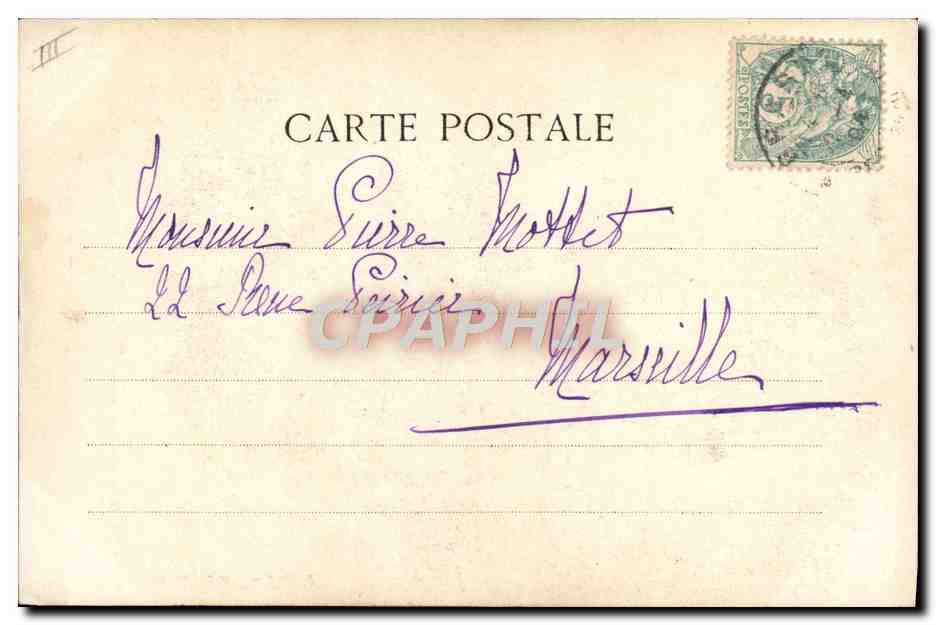 III
CARTE POSTALE
POSTES
Monsieur Pierre Mottet
22 Rue
CPAPHIL
Marseille